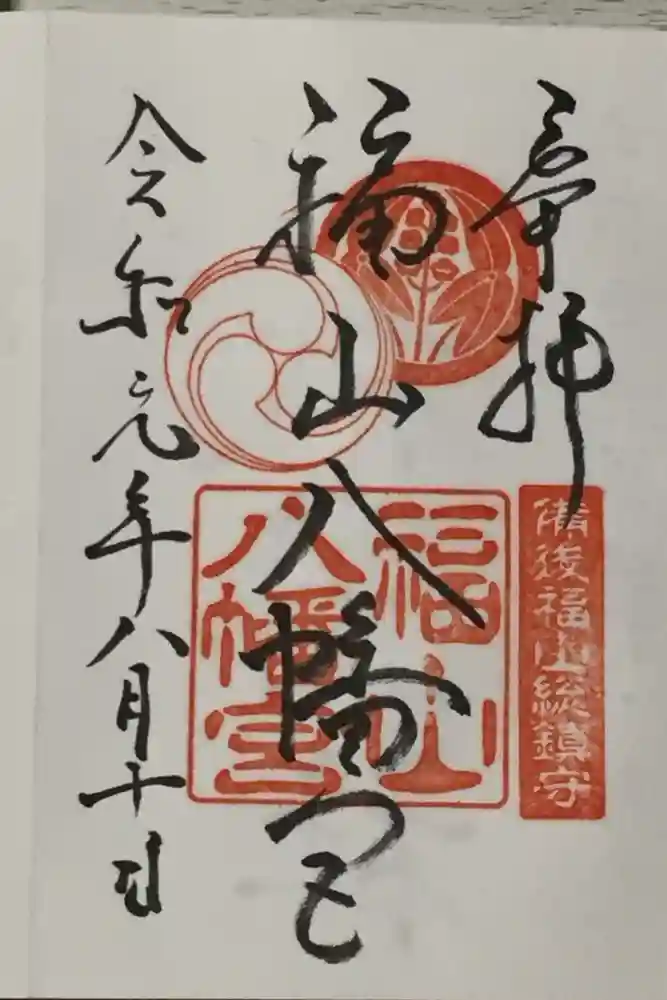 奉拝
備後福山総鎮守
福山八幡宮
福山
八幡宮
令和元年八月十日